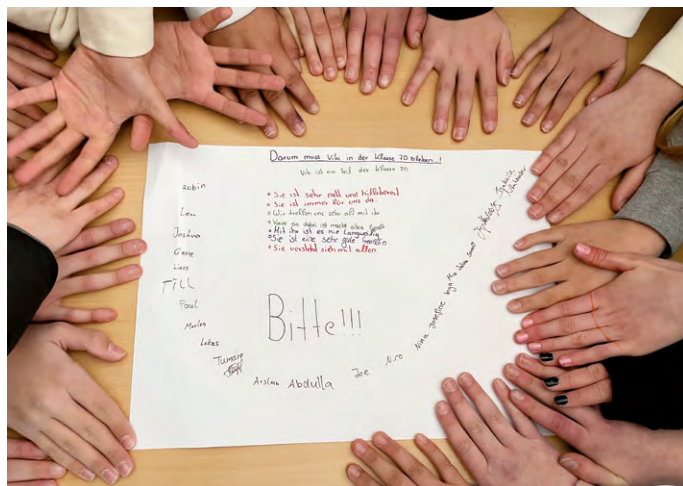 Darum muss Viki in der Klasse 7D bleiben!
Viki ist ein Teil der Klasse 7D
• Sie ist sehr nett und hilfsbereit
• Sie ist immer für uns da.
• Wir treffen uns sehr oft mit ihr
• Wenn sie dabei ist macht alles Spaß
• Mit ihr ist es nie Langweilig
• Sie ist eine sehr gute Freundin
• Sie versteht sich mit allen.
Robin
Leni
Joshua
Linos
TILL
Paul
Marlen
Lukas
Bitte!!!
Arslan
Abdulla
Joe
Niro
Nina
Josefine
Inga